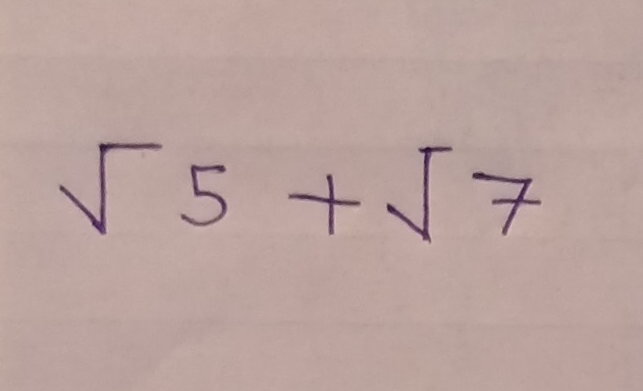 √5 + √7